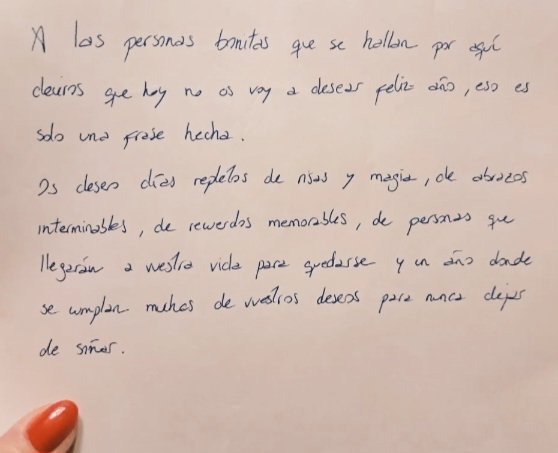 A las personas bonitas que se hallan por aquí
deciros que hoy no os voy a desear feliz año, eso es
solo una frase hecha.
Os deseo días repletos de risas y magia, de abrazos
interminables, de recuerdos memorables, de personas que
llegarán a vuestra vida para quedarse y un año donde
se cumplan muchos de vuestros deseos para nunca dejar
de soñar.